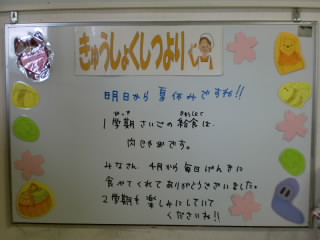 きゅうしょくしつより
明日から 夏休みですね!!
1学期 さいごの 給食は、
肉じゃがです。
みなさん、4月から 毎日 げんきに
食べてくれて ありがとうございました。
2学期も 楽しみにしていて
くださいね!!